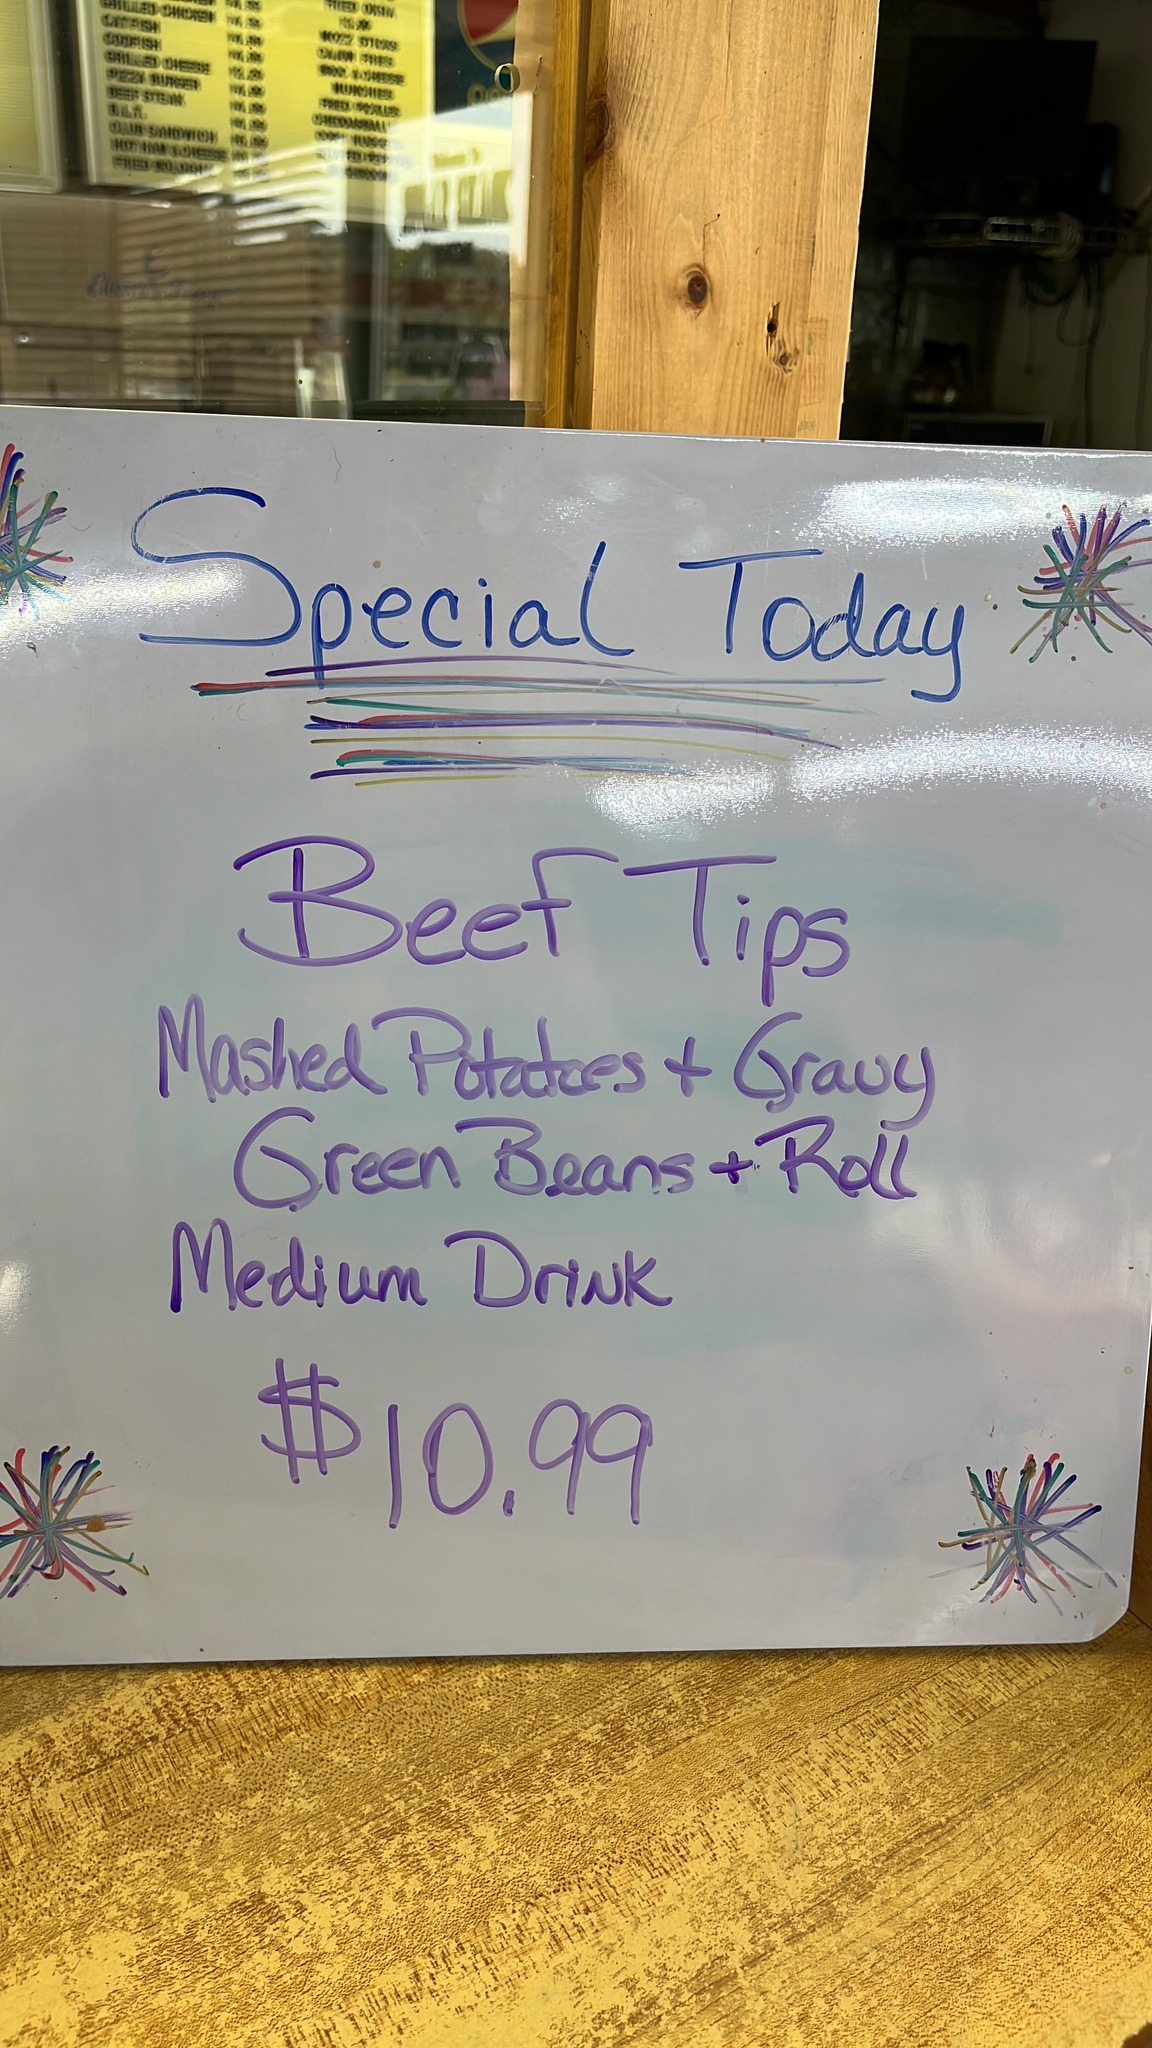 GRILLED CHICKEN
CATFISH
CODFISH
GRILLED CHEESE
PIZZA BURGER
BEEF STEAK
B.L.T.
CLUB SANDWICH
HOT HAM & CHEESE
FRIED BOLOGNA
FRIED OKRA
MOZZ STICKS
MUNCHERS
FRIED PICKLES
Special Today
Beef Tips
Mashed Potatoes + Gravy
Green Beans + Roll
Medium Drink
$10.99